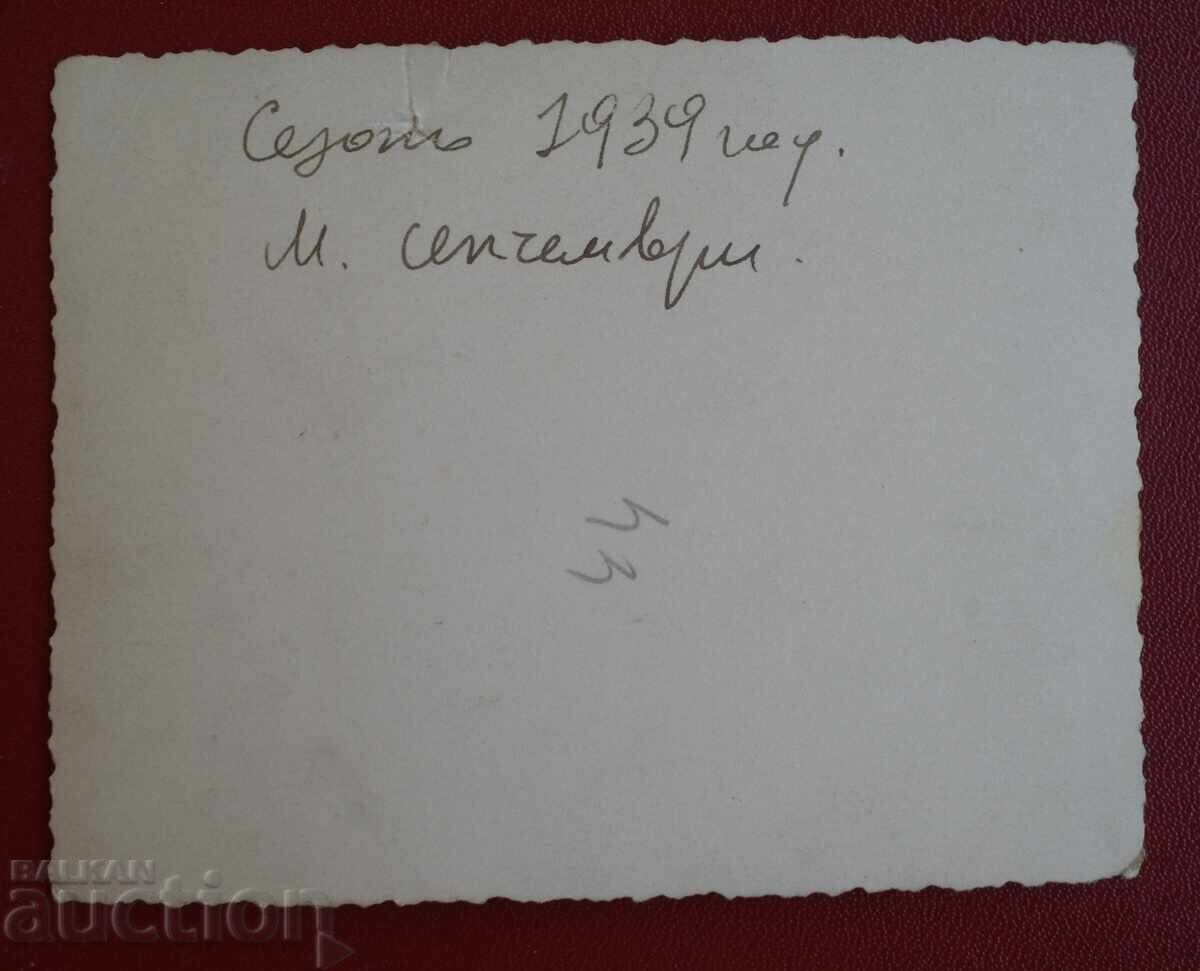 Сезонъ 1939 год.
м. септември.
43
BALKAN
auction